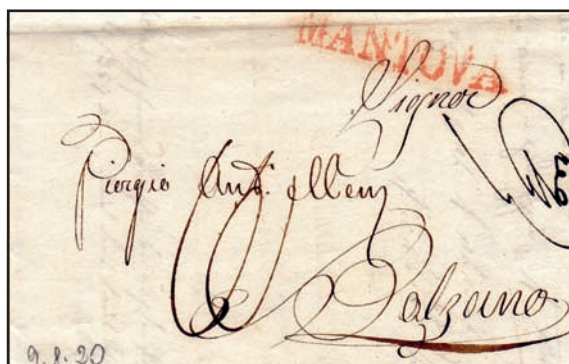 MANTOVA
Signor
Giorgio Ant. Menz
Bolzano
9.8.20